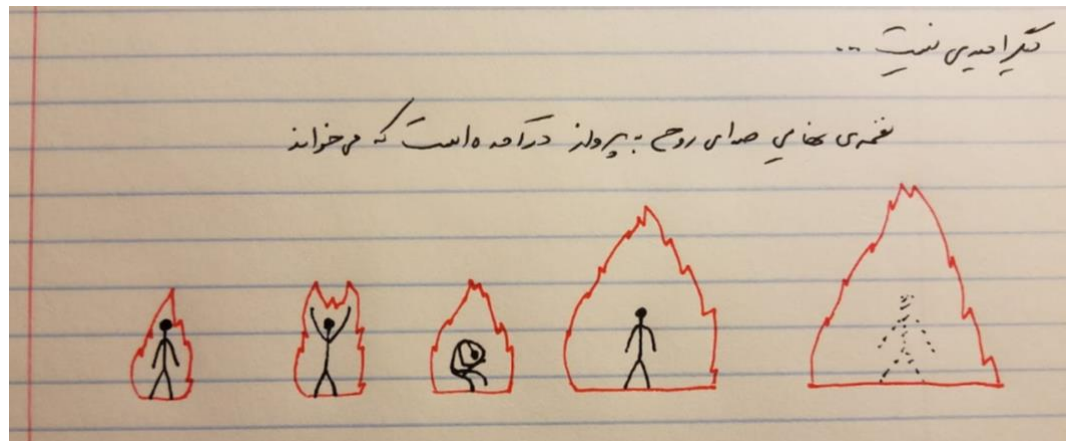 دیگر امیدی نیست ...
نغمه‌ی نهایی صدای روح به پرواز درآمده‌است که می‌خواند